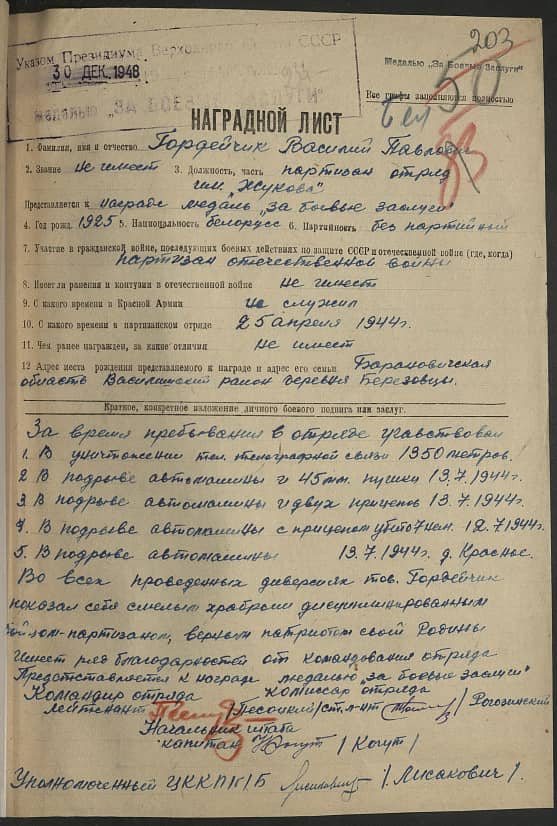 203
Указом Президиума Верховного Совета СССР
30 ДЕК. 1948
медалью „ЗА БОЕВЫЕ ЗАСЛУГИ"
Медалью „За Боевые Заслуги"
50
Все графы заполняются полностью
НАГРАДНОЙ ЛИСТ
1. Фамилия, имя и отчество Гордейчик Василий Павлович
2. Звание не имеет 3. Должность, часть партизан отряд
им. „Жукова"
Представляется к награде медаль „за боевые заслуги"
4. Год рожд. 1925 5. Национальность белорусс 6. Партийность без партийный
7. Участие в гражданской войне, последующих боевых действиях по защите СССР и отечественной войне (где, когда)
партизан отечественной войны
8. Имеет ли ранения и контузии в отечественной войне не имеет
9. С какого времени в Красной Армии не служил
10. С какого времени в партизанском отряде 25 апреля 1944г.
11. Чем ранее награжден, за какие отличия не имеет
12 Адрес места рождения представляемого к награде и адрес его семьи Барановичская
область Василишский район деревня Березовцы.
Краткое, конкретное изложение личного боевого подвига или заслуг.
За время пребывания в отряде участвовал
1. В уничтожении тел. телеграфной связи 1350 метров.
2 В подрыве автомашины и 45мм. пушки 13.7.1944г.
3. В подрыве автомашины и двух прицепов 13.7.1944г.
4. В подрыве автомашины с прицепом убито 7 нем. 12.7.1944г.
5. В подрыве автомашины 13.7.1944г. д. Краснос.
Во всех проведенных диверсиях тов. Гордейчик
показал себя смелым храбрым дисциплинированным
бойцом-партизаном, верным патриотом своей Родины
Имеет ряд благодарностей от командования отряда
Представляется к награде медалью „за боевые заслуги"
Командир отряда комиссар отряда
лейтенант /Песоцкий/ ст. л-нт / Рогозинский
Начальник штаба
капитан Когут / Когут /
Уполномоченный ЦККП/б/Б Лисакович /. Лисакович /.